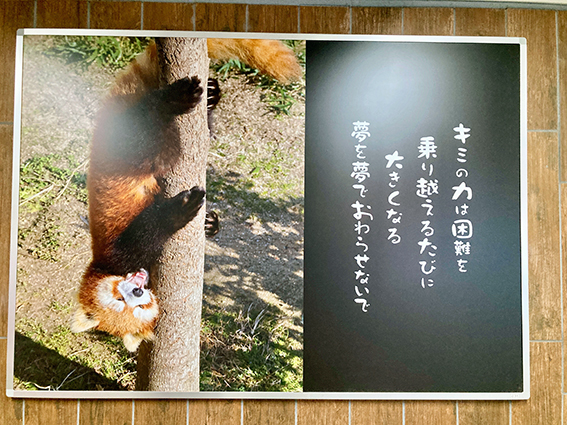 キミの力は困難を
乗り越えるたびに
大きくなる
夢を夢でおわらせないで